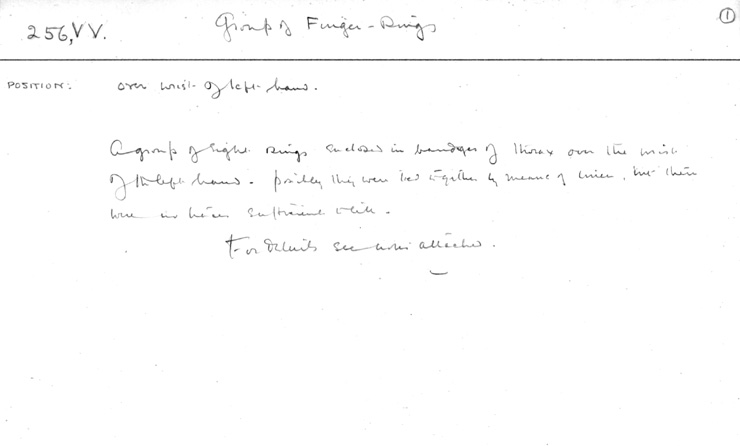 256,VV. Group of Finger-Rings 1
POSITION: over wrist of left hand.
A group of eight rings enclosed in bandages of thorax over the wrist
of the left hand. possibly they were tied together by means of linen, but there
were no traces sufficient to tell.
For details see notes attached.